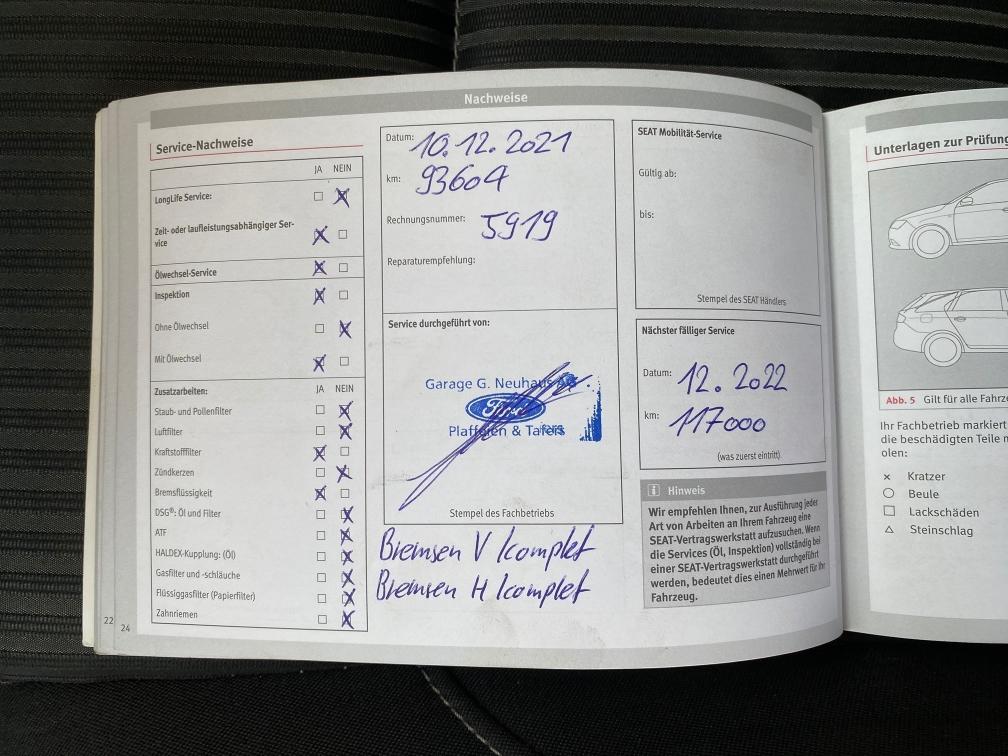 Nachweise
Service-Nachweise
JA NEIN
LongLife Service:
Zeit- oder laufleistungsabhängiger Ser-
vice
Ölwechsel-Service
Inspektion
Ohne Ölwechsel
Mit Ölwechsel
Zusatzarbeiten: JA NEIN
Staub- und Pollenfilter
Luftfilter
Kraftstofffilter
Zündkerzen
Bremsflüssigkeit
DSG®: Öl und Filter
ATF
HALDEX-Kupplung: (Öl)
Gasfilter und -schläuche
Flüssiggasfilter (Papierfilter)
Zahnriemen
22
24
Datum: 10.12.2021
km: 93604
Rechnungsnummer: 5919
Reparaturempfehlung:
Service durchgeführt von:
Garage G. Neuhaus AG
Ford
Plaffeien & Tafers
Stempel des Fachbetriebs
Bremsen V komplet
Bremsen H komplet
SEAT Mobilität-Service
Gültig ab:
bis:
Stempel des SEAT Händlers
Nächster fälliger Service
Datum: 12.2022
km: 117000
(was zuerst eintritt)
i Hinweis
Wir empfehlen Ihnen, zur Ausführung jeder
Art von Arbeiten an Ihrem Fahrzeug eine
SEAT-Vertragswerkstatt aufzusuchen. Wenn
die Services (Öl, Inspektion) vollständig bei
einer SEAT-Vertragswerkstatt durchgeführt
werden, bedeutet dies einen Mehrwert für Ihr
Fahrzeug.
Unterlagen zur Prüfung
Abb. 5 Gilt für alle Fahrze
Ihr Fachbetrieb markiert
die beschädigten Teile m
olen:
× Kratzer
○ Beule
□ Lackschäden
△ Steinschlag